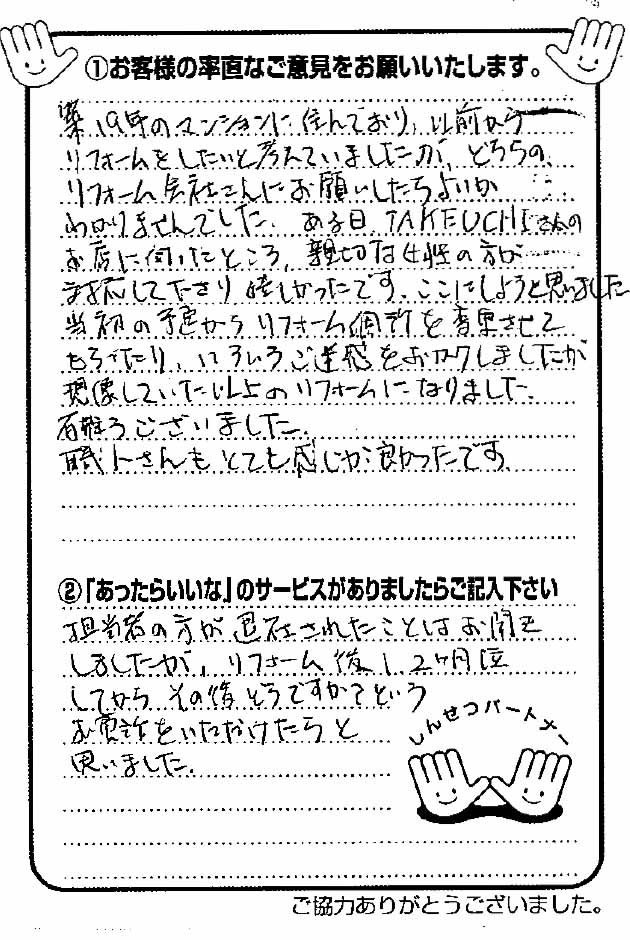 ①お客様の率直なご意見をお願いいたします。
築19年のマンションに住んでおり、以前から
リフォームをしたいと考えていましたが、どちらの
リフォーム会社さんにお願いしたらよいか
わかりませんでした。ある日、TAKEUCHIさんの
お店に伺いたところ、親切な女性の方が
対応して下さり嬉しかったです。ここにしようと思いました
当初の予定からリフォーム個所を変更させて
もらったり、いろいろご迷惑をおかけしましたが
想像していた以上のリフォームになりました。
有難うございました。
職人さんもとても感じが良かったです。
②「あったらいいな」のサービスがありましたらご記入下さい
担当者の方が退社されたことはお聞き
しましたが、リフォーム後1、2ヶ月位
してから その後どうですか?という
お電話をいただけたらと
思いました。
しんせつパートナー
ご協力ありがとうございました。